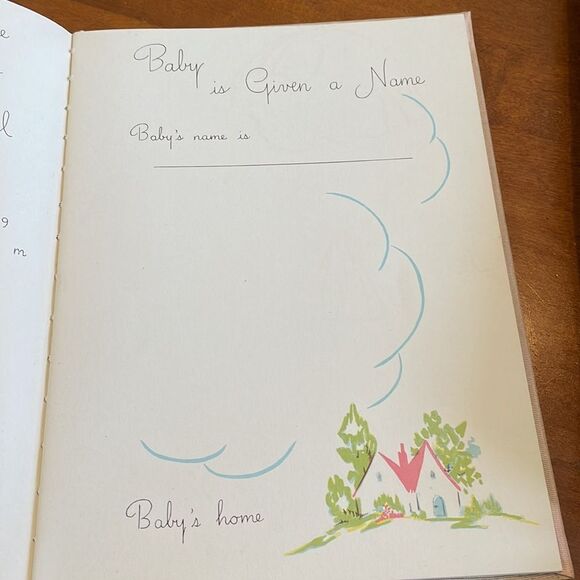 Baby
is Given a Name
Baby's name is
Baby's home
9
m